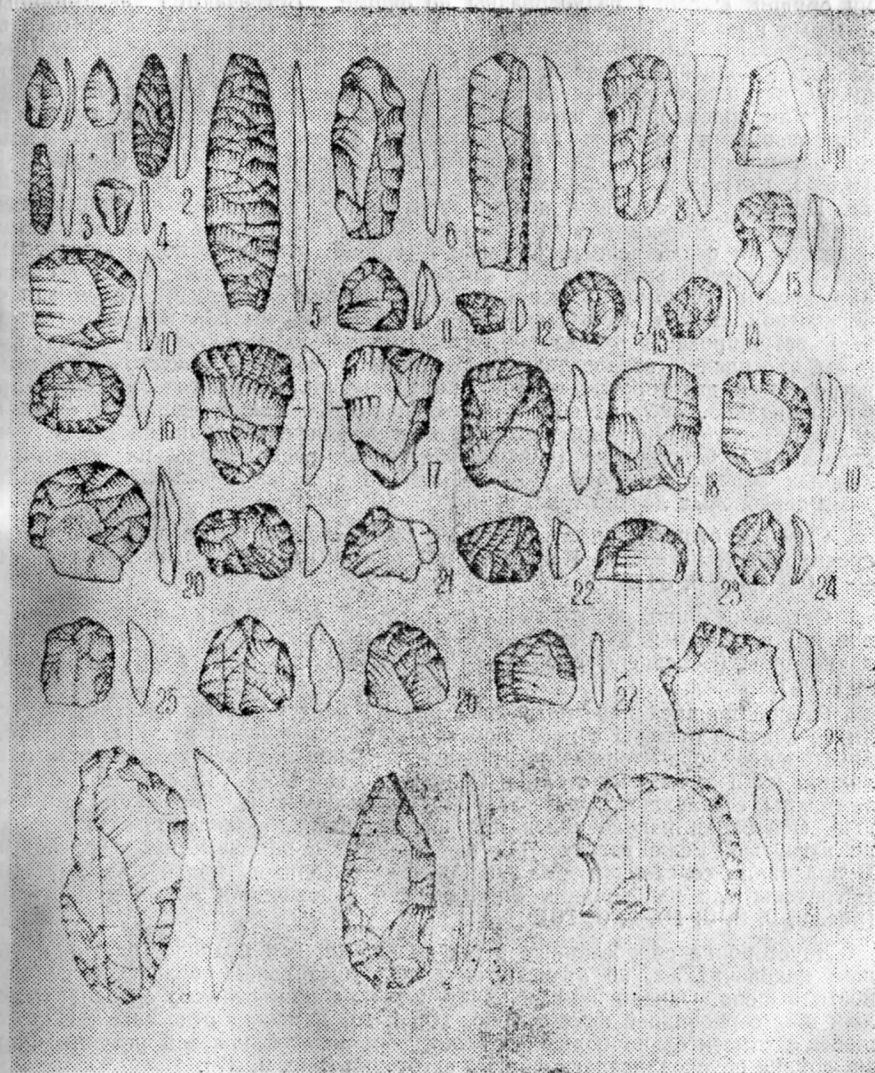 1 2 3 4 5 6 7 8 9
10 11 12 13 14 15
16 17 18 19
20 21 22 23 24
25 26 27 28
31